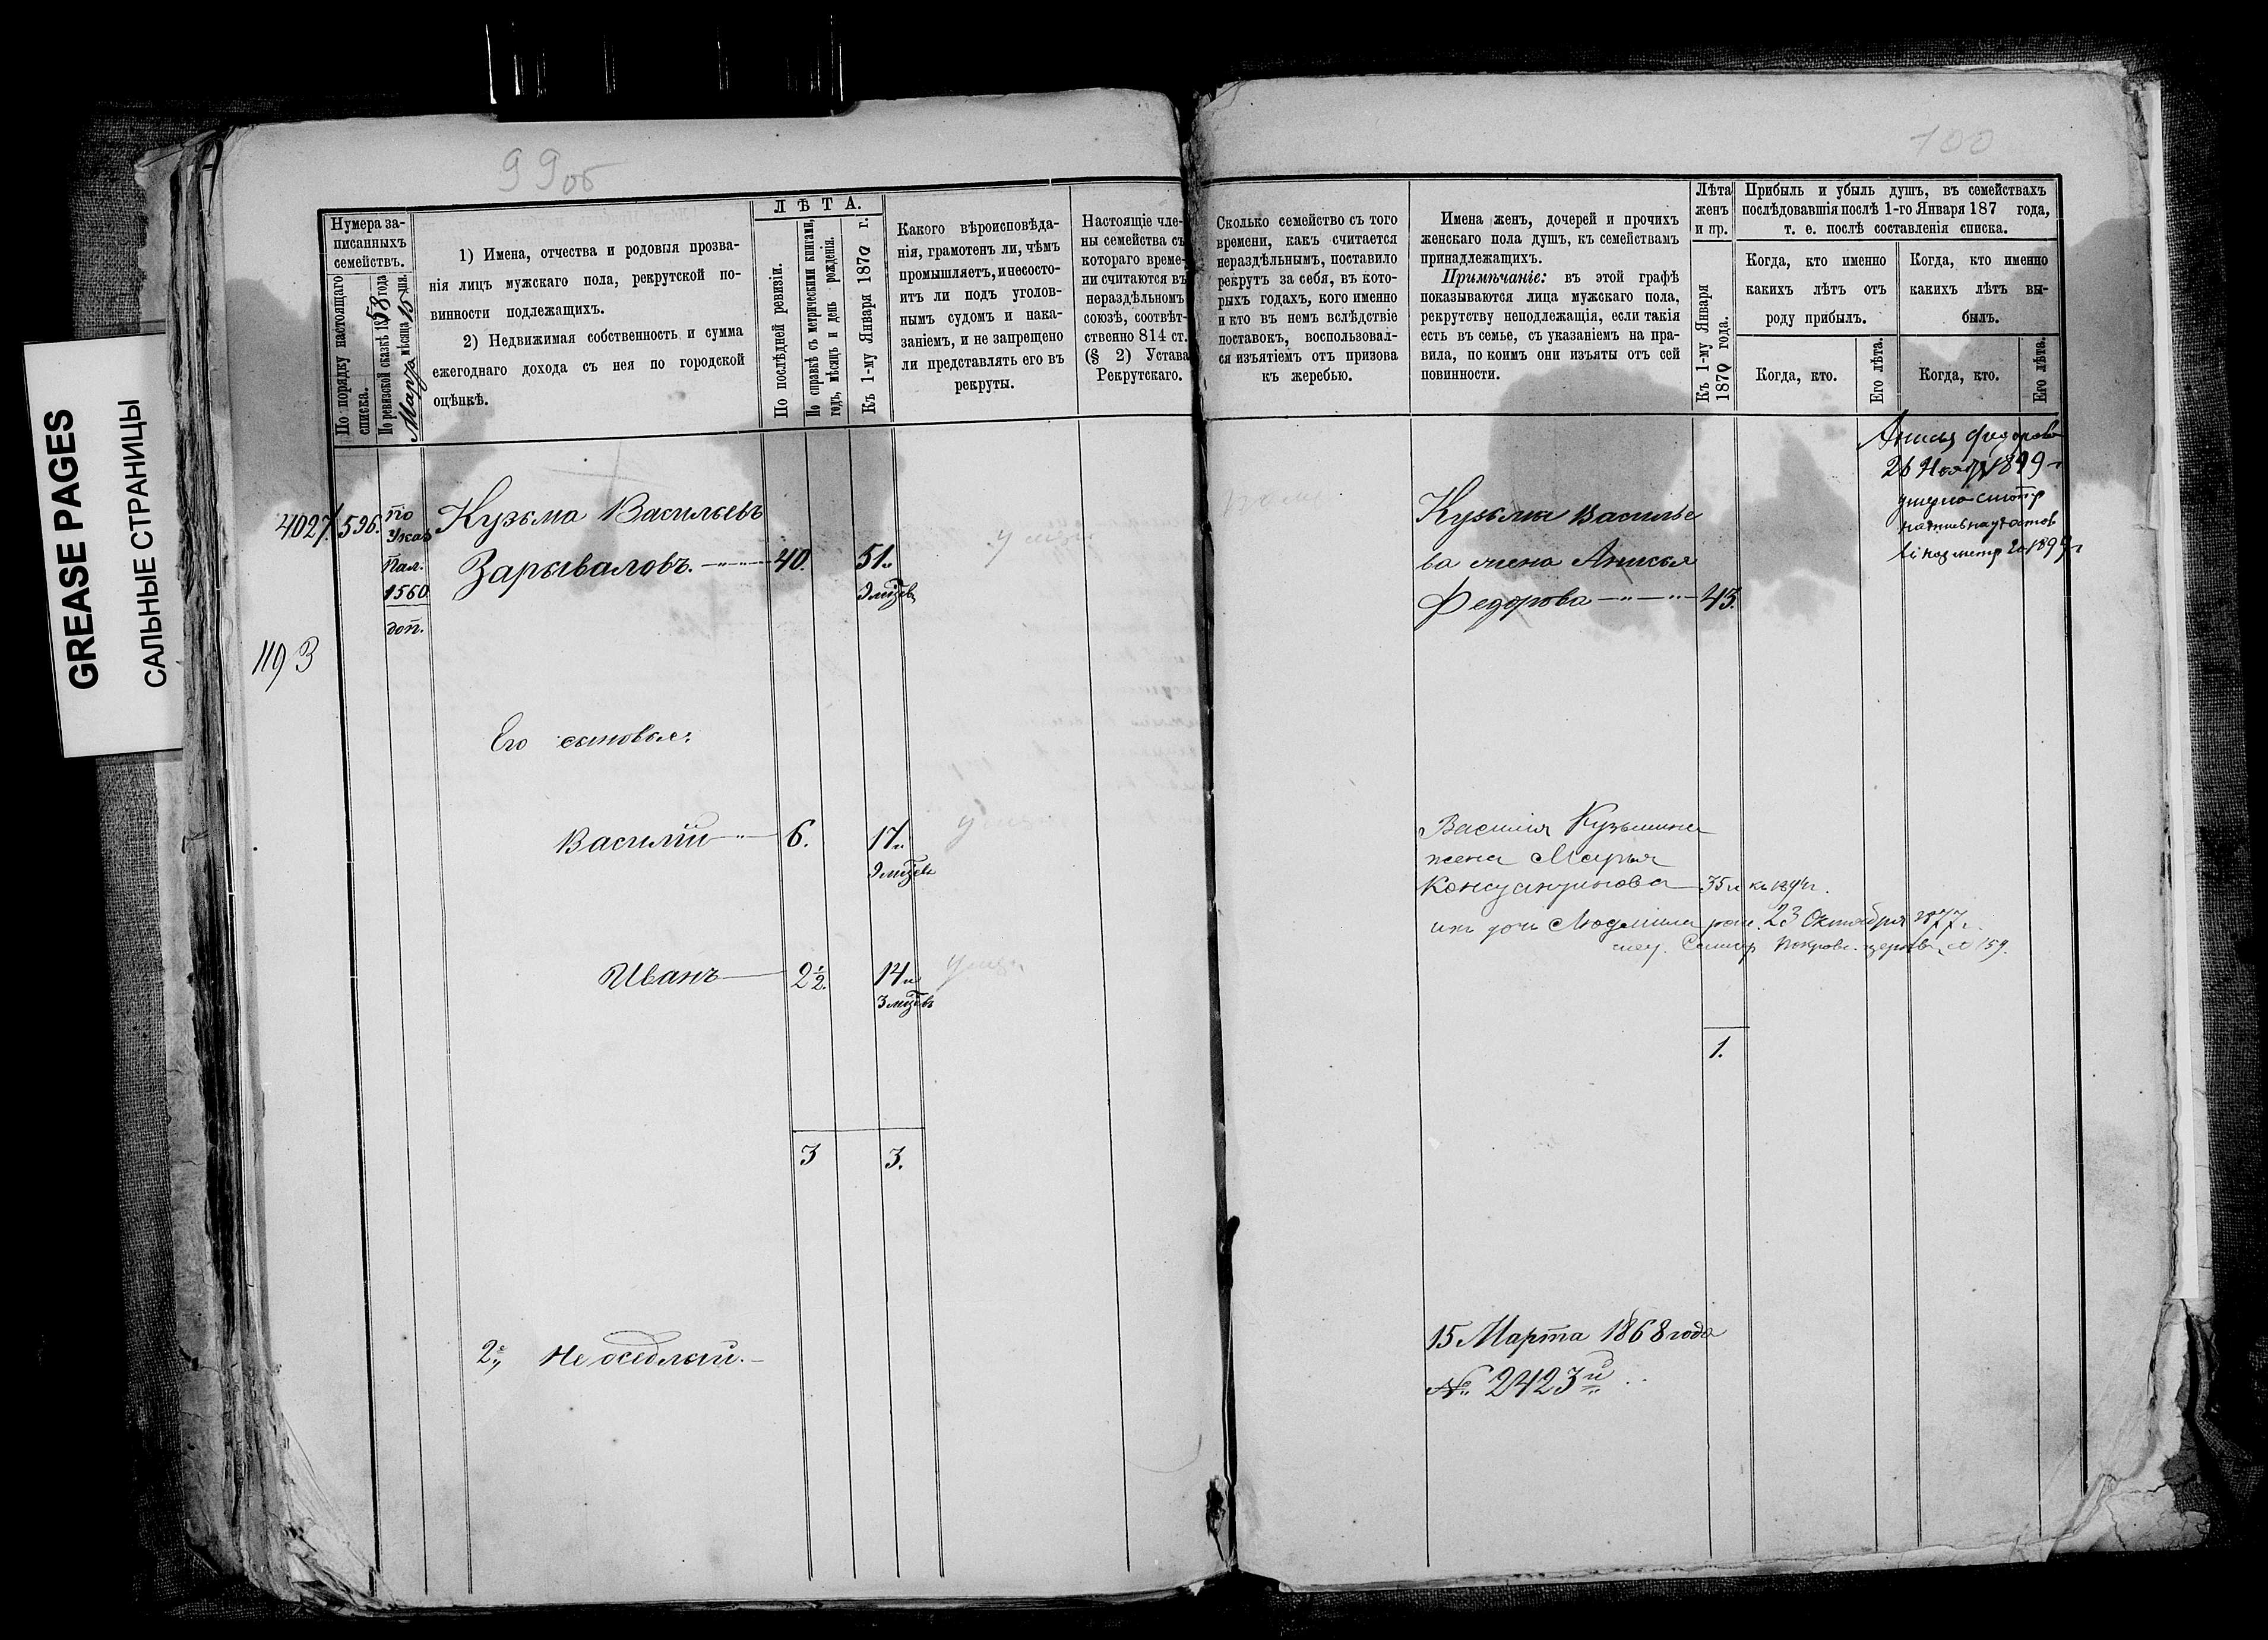 GREASE PAGES
САЛЬНЫЕ СТРАНИЦЫ
99об
Нумера за-
писанныхъ
семействъ.
По порядку настоящаго
списка.
По ревизской сказкѣ 1858 года
Марта мѣсяца 15 дня.
1) Имена, отчества и родовыя прозва-
нія лицъ мужскаго пола, рекрутской по-
винности подлежащихъ.
2) Недвижимая собственность и сумма
ежегоднаго дохода съ нея по городской
оцѣнкѣ.
ЛѢТА.
По послѣдней ревизіи.
По справкѣ съ метрическими книгами,
годъ, мѣсяцъ и день рожденія.
Къ 1-му Января 1870 г.
Какого вѣроисповѣда-
нія, грамотенъ ли, чѣмъ
промышляетъ, и несосто-
итъ ли подъ уголов-
нымъ судомъ и нака-
заніемъ, и не запрещено
ли представлять его въ
рекруты.
Настоящіе чле-
ны семейства съ
котораго време-
ни считаются въ
нераздѣльномъ
союзѣ, соотвѣт-
ственно 814 ст.
(§ 2) Устава
Рекрутскаго.
4027. 596. по
Указ
Пал.
1560
доп.
Кузьма Васильевъ
Зарываловъ. 40. 51
9 мѣсев
1193
Его сыновья:
Василій 6. 17
9 мѣсев
Иванъ 2 1/2. 14
3 мѣсевъ
3 3.
2е, Не оседлый.
100
Сколько семейство съ того
времени, какъ считается
нераздѣльнымъ, поставило
рекрутъ за себя, въ кото-
рыхъ годахъ, кого именно
и кто въ немъ вслѣдствіе
поставокъ, воспользовал-
ся изъятіемъ отъ призова
къ жеребью.
Имена женъ, дочерей и прочихъ
женскаго пола душъ, къ семействамъ
принадлежащихъ.
Примѣчаніе: въ этой графѣ
показываются лица мужскаго пола,
рекрутству неподлежащія, если такія
есть въ семье, съ указаніемъ на пра-
вила, по коимъ они изъяты отъ сей
повинности.
Лѣта
женъ
и пр.
Къ 1-му Января
1870 года.
Прибыль и убыль душъ, въ семействахъ
послѣдовавшія послѣ 1-го Января 187 года,
т. е. послѣ составленія списка.
Когда, кто именно
какихъ лѣтъ отъ
роду прибылъ.
Когда, кто именно
какихъ лѣтъ вы-
былъ.
Когда, кто.
Его лѣта.
Когда, кто.
Его лѣта.
Анисья Федорова
26 Ноября 1899 г
умерла смотр
Кузьмы Василье
ва жена Анисья
Федорова 43.
Василія Кузьмина
жена Марья
Константинова 35 л къ 1894 г.
ихъ дочь Людмила рож. 23 Октября 1877 г.
Самар Покровс. церкви № 159.
1.
15 Марта 1868 года
№ 2423й